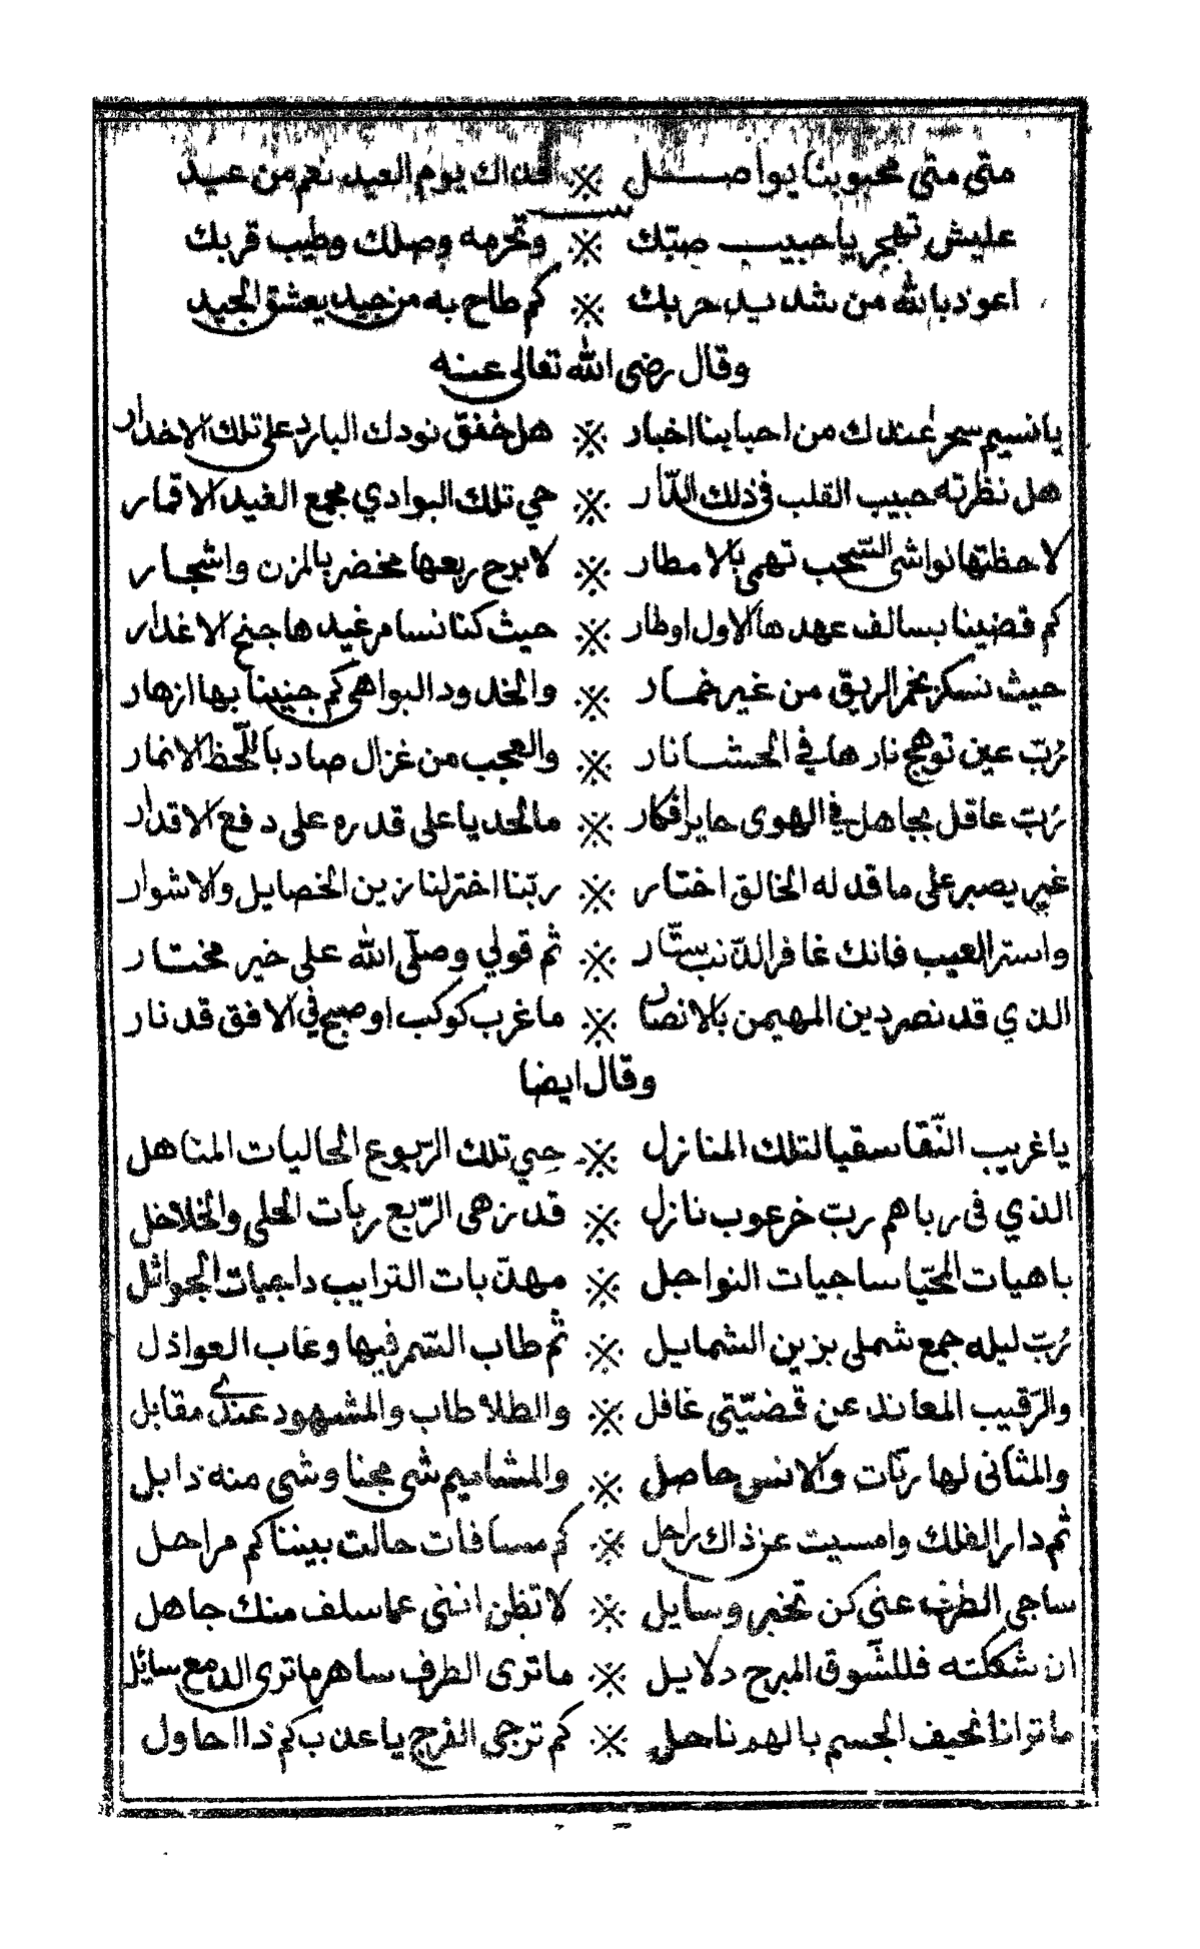 متى متى محبوبنا يواصل ※ فذاك يوم العيد نعم من عيد
عليش تهجر يا حبيب صبّك ※ وتحرمه وصلك وطيب قربك
اعوذ بالله من شديد حربك ※ كم طاح به من جيد يعشق الجيد
وقال رضى الله تعالى عنه
يا نسيم سحر عندك من احبابنا اخبار ※ هل خفق نودك البارد على تلك الاخدار
هل نظرته حبيب القلب في ذلك الدّار ※ حي تلك البوادي مجمع الغيد الاقمار
لاحظتها نواشى السّحب تهمى بالامطار ※ لا برح ربعها مخضر بالمزن واشجار
كم قضينا بسالف عهدها الاول اوطار ※ حيث كنا نسامر غيدها جنح الاغدار
حيث نسكر بخمر الريق من غير خمار ※ والخدود البواهى كم جنينا بها ازهار
رُبّ عين توهج نارها في الحشا نار ※ والعجب من غزال صاد باللّحظ الانمار
رُبّ عاقل بجاهل في الهوى حاير افكار ※ مالحد يا على قدره على دفع الاقدار
غير يصبر على ما قد له الخالق اختار ※ ربّنا اختر لنا زين الخصايل والاشوار
واستر العيب فانك غافر الذّنب ستّار ※ ثم قولي وصلّى الله على خير مختار
الذي قد نصر دين المهيمن بالانصار ※ ما غرب كوكب او صبح في الافق قد نار
وقال ايضا
يا غريب النّقا سقيا لتلك المنازل ※ حِي تلك الرّبوع الحاليات المناهل
الذي فى رباهم رب خرعوب نازل ※ قد زهى الرّبع ربات الحلى والخلاخل
باهيات المحيّا ساجيات النواجل ※ مهذّبات الترايب داجيات الجواثل
رُبّ ليله جمع شملى بزين الشمايل ※ ثم طاب السّمر فيها وغاب العواذل
والرّقيب المعاند عن قضيّتى غافل ※ والطلا طاب والمشهود عندى مقابل
والمثانى لها ربّات والانس حاصل ※ والمشاميم شى مجنا وشى منه ذابل
ثم دار الفلك وامسيت عن ذاك راحل ※ كم مسافات حالت بيننا كم مراحل
ساجى الطرف عنى كن تخبر وسايل ※ لا تظن اننى عما سلف منك جاهل
ان شككته فللشّوق المبرح دلايل ※ ما ترى الطرف ساهر ما ترى الدمع سائل
ما ترانا نحيف الجسم بالهم ناحل ※ كم ترجى الفرج يا عذب كم ذا احاول